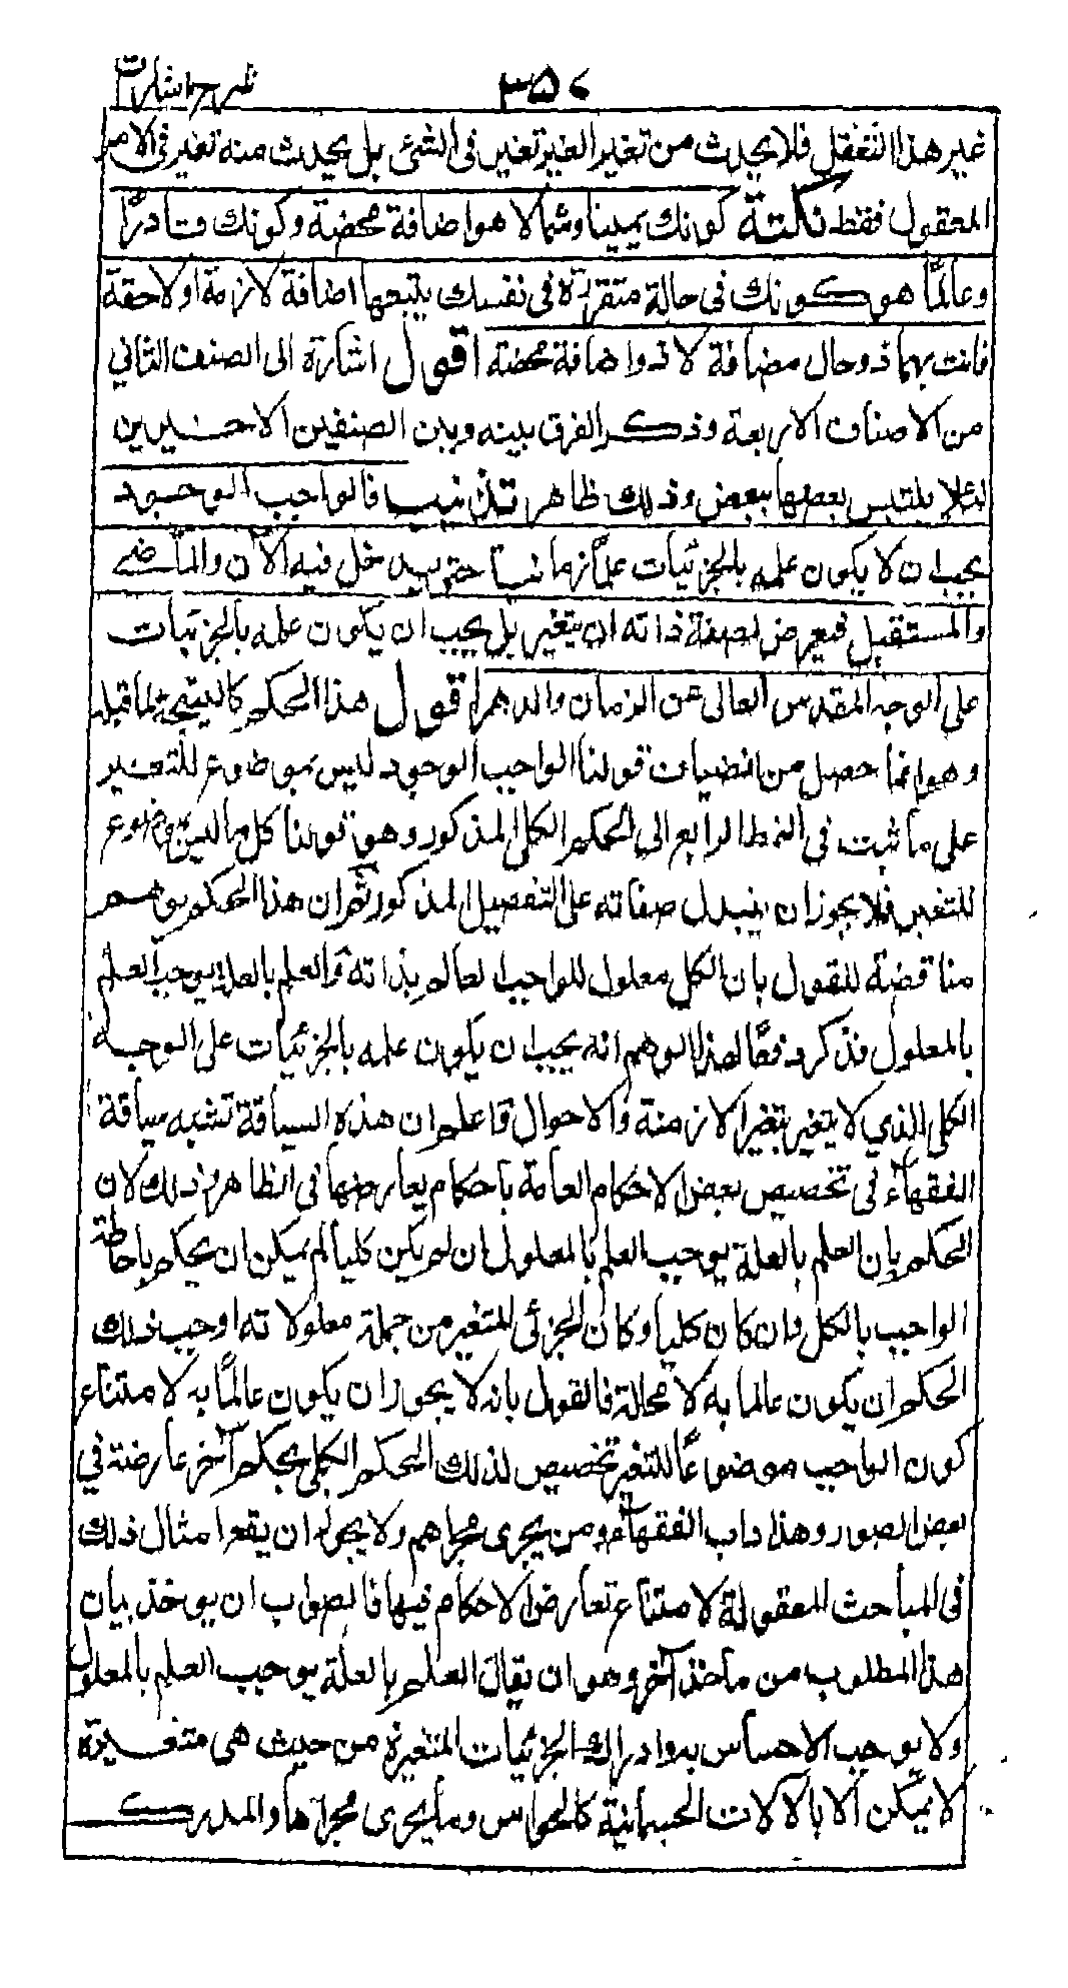 شرح اشارات ٣٥٦
غير هذا التعقل فلا يحدث من تغير الغير تغير في الشئ بل يحدث منه تغير في الامر
المعقول فقط نكتة كونك يمينا وشمالا هو اضافة محضة وكونك قادرًا
وعالمًا هو كونك في حالة متقررة في نفسك يتبعها اضافة لازمة اولاحقة
فانت بهما ذو حال مضافة لا ذو اضافة محضة اقول اشارة الى الصنف الثاني
من الاصناف الاربعة وذكر الفرق بينه وبين الصنفين الاخيرين
لئلا يلتبس بعضها ببعض وذلك ظاهر تذنيب فالواجب الوجود
يجب ان لا يكون علمه بالجزئيات علمًا زمانيا حتى يدخل فيه الآن والماضي
والمستقبل فيعرض لصفة ذاته ان يتغير بل يجب ان يكون علمه بالجزئيات
على الوجه المقدس العالى عن الزمان والدهر اقول هذا الحكم كالنتيجة لما قبله
وهو انما حصل من انضياف قولنا الواجب الوجود ليس بموضوع للتغير
على ما ثبت في النمط الرابع الى الحكم الكلى المذكور وهو قولنا كل ما ليس بموضوع
للتغير فلا يجوز ان يتبدل صفاته على التفصيل المذكور ثم ان هذا الحكم يوهم
مناقضة للقول بان الكل معلول للواجب العالم بذاته والعلم بالعلة يوجب العلم
بالمعلول فذكر دفعًا لهذا الوهم انه يجب ان يكون علمه بالجزئيات على الوجه
الكلى الذي لا يتغير بتغير الازمنة والاحوال واعلم ان هذه السياقة تشبه سياقة
الفقهاء في تخصيص بعض الاحكام العامة باحكام يعارضها في الظاهر وذلك لان
الحكم بان العلم بالعلة يوجب العلم بالمعلول ان لم يكن كليا لم يمكن ان يحكم باحاطة
الواجب بالكل وان كان كليا وكان الجزئى المتغير من جملة معلولاته اوجب ذلك
الحكم ان يكون عالما به لا محالة فالقول بانه لا يجوز ان يكون عالمًا به لامتناع
كون الواجب موضوعًا للتغير تخصيص لذلك الحكم الكلى بحكم آخر عارضه في
بعض الصور وهذا داب الفقهاء ومن يجرى مجراهم ولا يجوز ان يقع امثال ذلك
في المباحث المعقولة لامتناع تعارض الاحكام فيها فالصواب ان يوخذ بيان
هذا المطلوب من ماخذ آخر وهو ان يقال العلم بالعلة يوجب العلم بالمعلول
ولا يوجب الاحساس به وادراك الجزئيات المتغيرة من حيث هى متغيرة
لا يمكن الا بالآلات الجسمانية كالحواس وما يجرى مجراها والمدرك